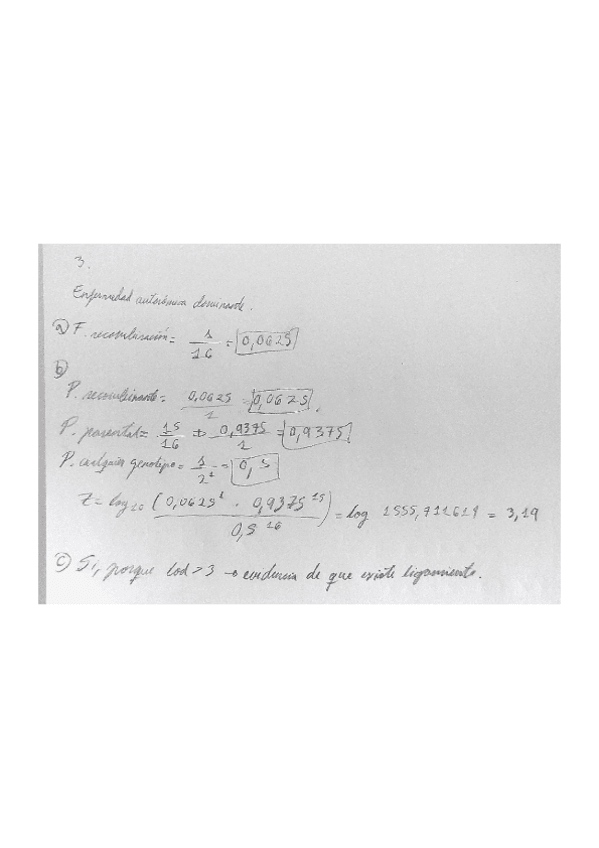 3.
Enfermedad autosómica dominante.
a) F. recombinación = 1/16 = 0,0625
b)
P. recombinante = 0,0625/1 = 0,0625.
P. parental = 15/16 → 0,9375/1 = 0,9375
P. cualquier genotipo = 1/2¹ = 0,5
Z = log10 (0,0625¹ · 0,9375¹⁵ / 0,5¹⁶) = log 1555,711619 = 3,19
c) Sí, porque lod > 3 → evidencia de que existe ligamiento.